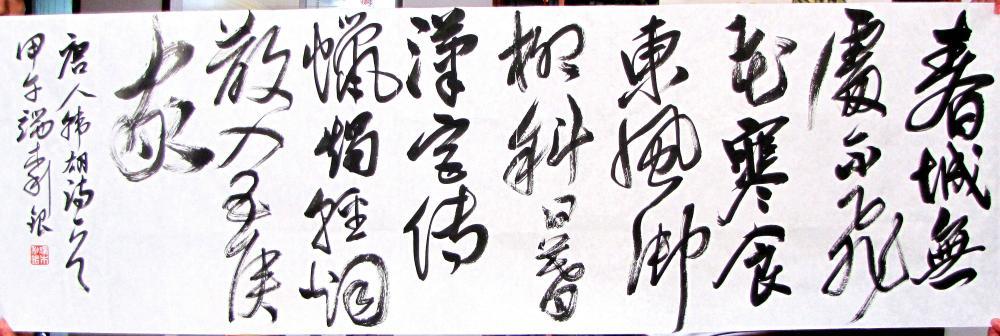 春城無
處不飛
花寒食
東風御
柳斜日暮
漢宮传
蠟燭輕烟
散入五侯
家
唐人韩翃诗一首
甲午端